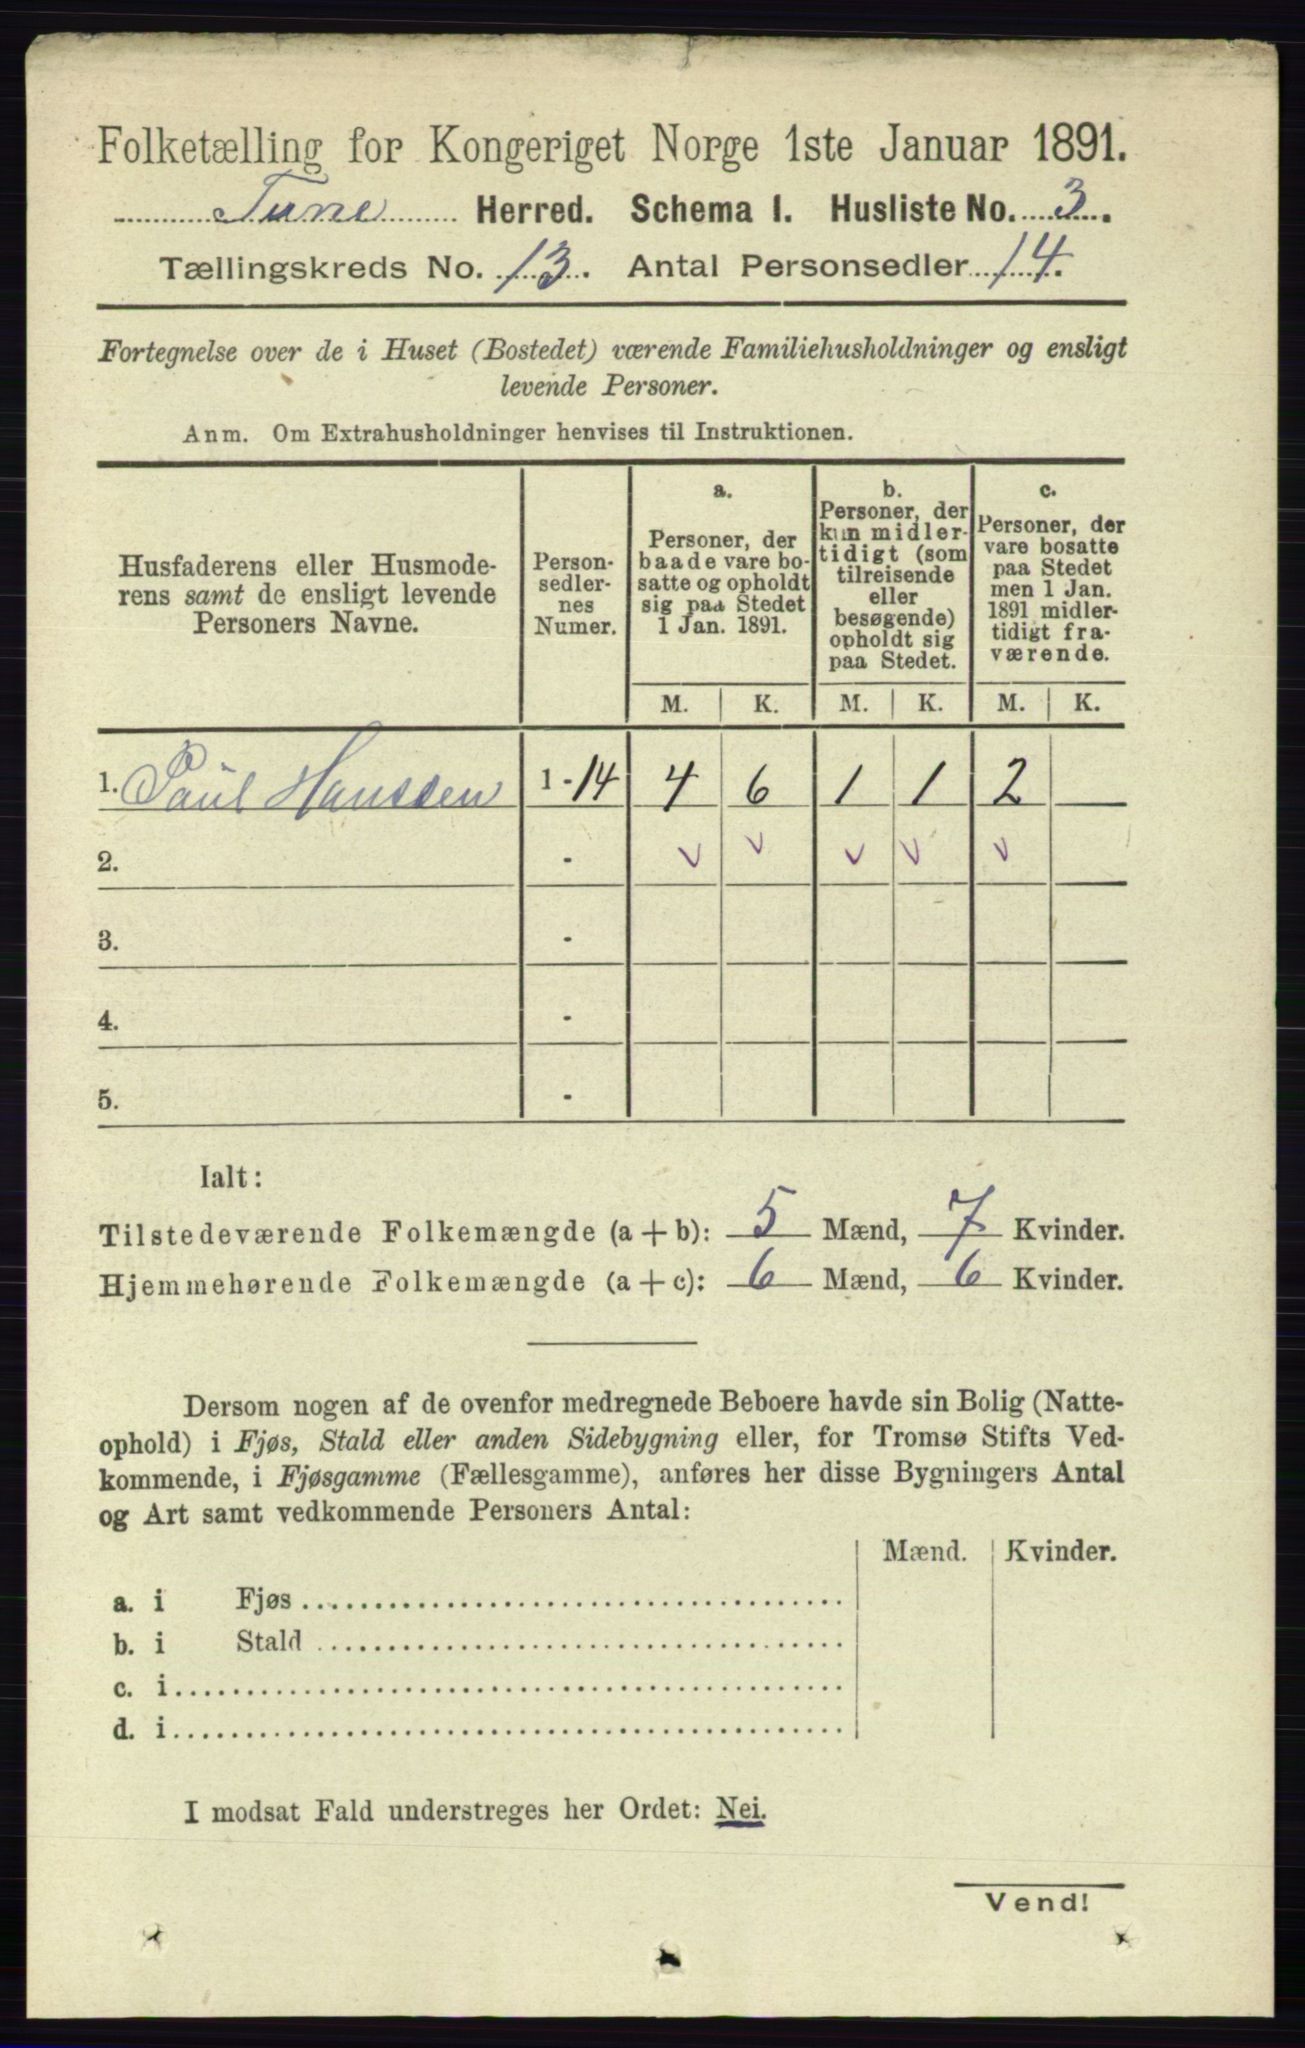 Folketælling for Kongeriget Norge 1ste Januar 1891.
Tune Herred. Schema I. Husliste No. 3.
Tællingskreds No. 13. Antal Personsedler 14.
Fortegnelse over de i Huset (Bostedet) værende Familiehusholdninger og ensligt
levende Personer.
Anm. Om Extrahusholdninger henvises til Instruktionen.
Husfaderens eller Husmode-
rens samt de ensligt levende
Personers Navne.
Person-
sedler-
nes
Numer.
a.
Personer, der
baade vare bo-
satte og opholdt
sig paa Stedet
1 Jan. 1891.
b.
Personer, der
kun midler-
tidigt (som
tilreisende
eller
besøgende)
opholdt sig
paa Stedet.
c.
Personer, der
vare bosatte
paa Stedet
men 1 Jan.
1891 midler-
tidigt fra-
værende.
M. K. M. K. M. K.
1. Paul Hanssen 1 - 14 4 6 1 1 2
2. - v v v v v
3. -
4. -
5. -
Ialt:
Tilstedeværende Folkemængde (a + b): 5 Mænd, 7 Kvinder.
Hjemmehørende Folkemængde (a + c): 6 Mænd, 6 Kvinder.
Dersom nogen af de ovenfor medregnede Beboere havde sin Bolig (Natte-
ophold) i Fjøs, Stald eller anden Sidebygning eller, for Tromsø Stifts Ved-
kommende, i Fjøsgamme (Fællesgamme), anføres her disse Bygningers Antal
og Art samt vedkommende Personers Antal:
Mænd. Kvinder.
a. i Fjøs
b. i Stald
c. i
d. i
I modsat Fald understreges her Ordet: Nei.
Vend!